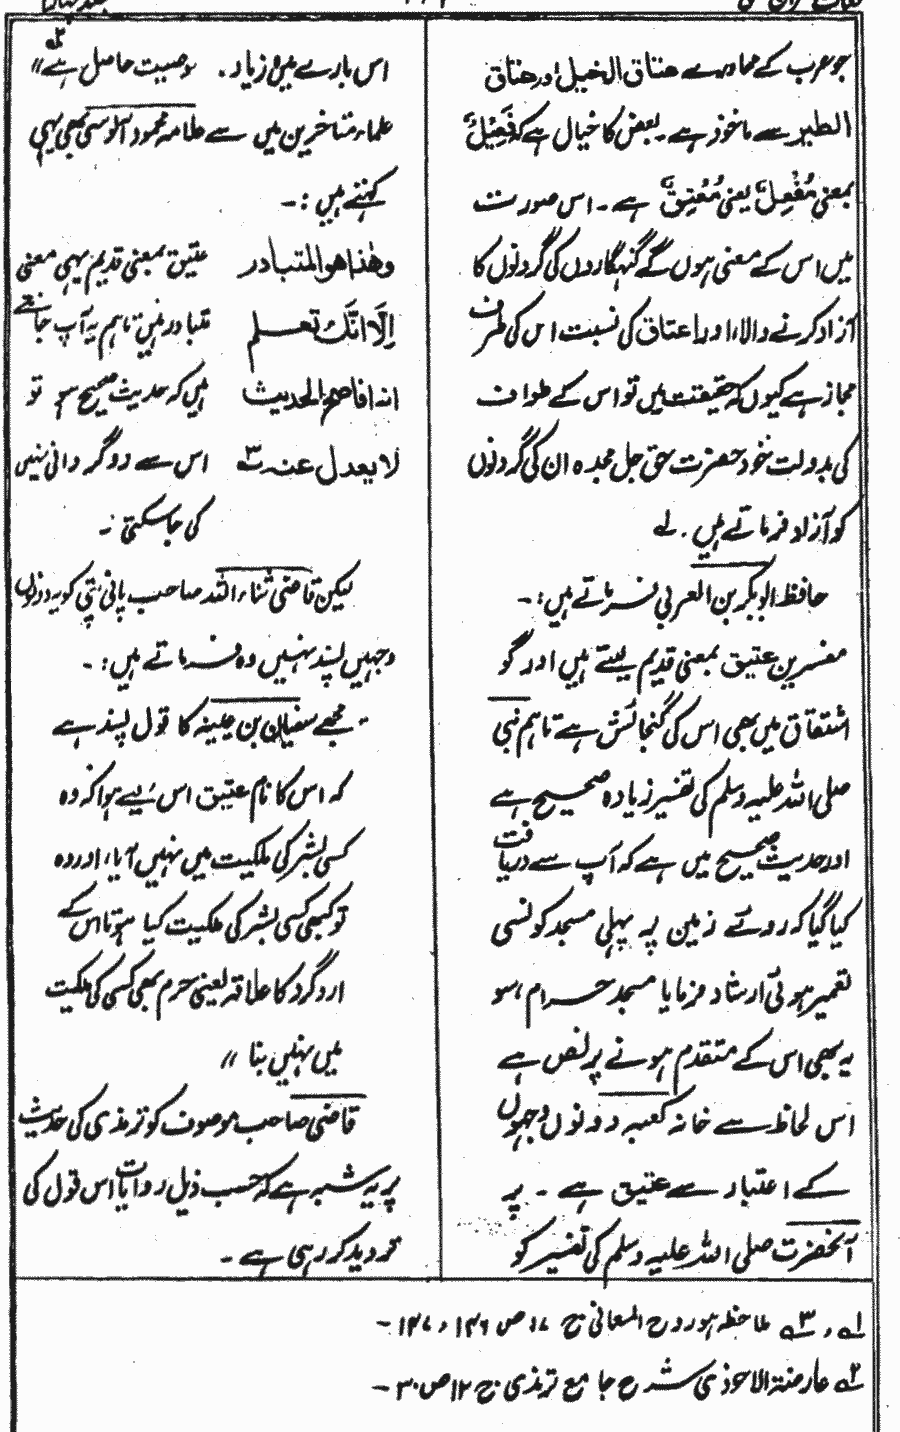 جو عرب کے محاورے عتاق الخیل اور عتاق
الطیر سے ماخوذ ہے۔ بعض کا خیال ہے کہ فَعِیْلٌ
بمعنی مُفْعِلٌ یعنی مُعْتِقٌ ہے۔ اس صورت
میں اس کے معنی ہوں گے گنہگاروں کی گردنوں کا
آزاد کرنے والا، اور اعتاق کی نسبت اس کی طرف
مجاز ہے کیوں کہ حقیقت میں تو اس کے طواف
کی بدولت خود حضرت حق جل مجدہ ان کی گردنوں
کو آزاد فرماتے ہیں۔ لہ
حافظ ابوبکر بن العربی فرماتے ہیں:۔
مفسرین عتیق بمعنی قدیم لیتے ہیں اور گو
اشتقاق میں بھی اس کی گنجائش ہے تاہم نبی
صلی اللہ علیہ وسلم کی تفسیر زیادہ صحیح ہے
اور حدیث صحیح میں ہے کہ آپ سے دریافت
کیا گیا کہ روئے زمین پہ پہلی مسجد کونسی
تعمیر ہوئی آ ارشاد فرمایا مسجد حرام، سو
یہ بھی اس کے متقدم ہونے پر نص ہے
اس لحاظ سے خانہ کعبہ دونوں وجہوں
کے اعتبار سے عتیق ہے۔ پر
آنحضرت صلی اللہ علیہ وسلم کی تفسیر کو
اس بارے میں زیادہ وصیت حاصل ہے“ ۲ہ
علماء متاخرین میں سے علامہ محمود آلوسی بھی یہی
کہتے ہیں:۔
وھذا ھو المتبادر عتیق بمعنی قدیم یہی معنی
الا انّک تعلم متبادر ہیں تاہم یہ آپ جانتے
انہ اذا صح الحدیث ہیں کہ حدیث صحیح سو تو
لا یعدل عنہ ۳ہ اس سے روگردانی نہیں
کی جا سکتی :۔
لیکن قاضی ثناء اللہ صاحب پانی پتی کو یہ دونوں
وجہیں پسند نہیں وہ فرماتے ہیں:۔
” مجھے سفیان بن عیینہ کا قول پسند ہے
کہ اس کا نام عتیق اس لیے ہوا کہ وہ
کسی بشر کی ملکیت میں نہیں آیا، اور وہ
تو کبھی کسی بشر کی ملکیت کیا ہوتا اس کے
اردگرد کا علاقہ یعنی حرم بھی کسی کی ملکیت
میں نہیں بنا “
قاضی صاحب موصوف کو ترمذی کی حدیث
پر یہ شبہ ہے کہ حسب ذیل روایات اس قول کی
تردید کر رہی ہے۔
۱ہ، ۳ہ ملاحظہ ہو روح المعانی ج ۱۷، ص ۱۴۶، ۱۴۷۔
۲ہ عارضۃ الاحوذی شرح جامع ترمذی ج ۱۲ ص ۳۰۔